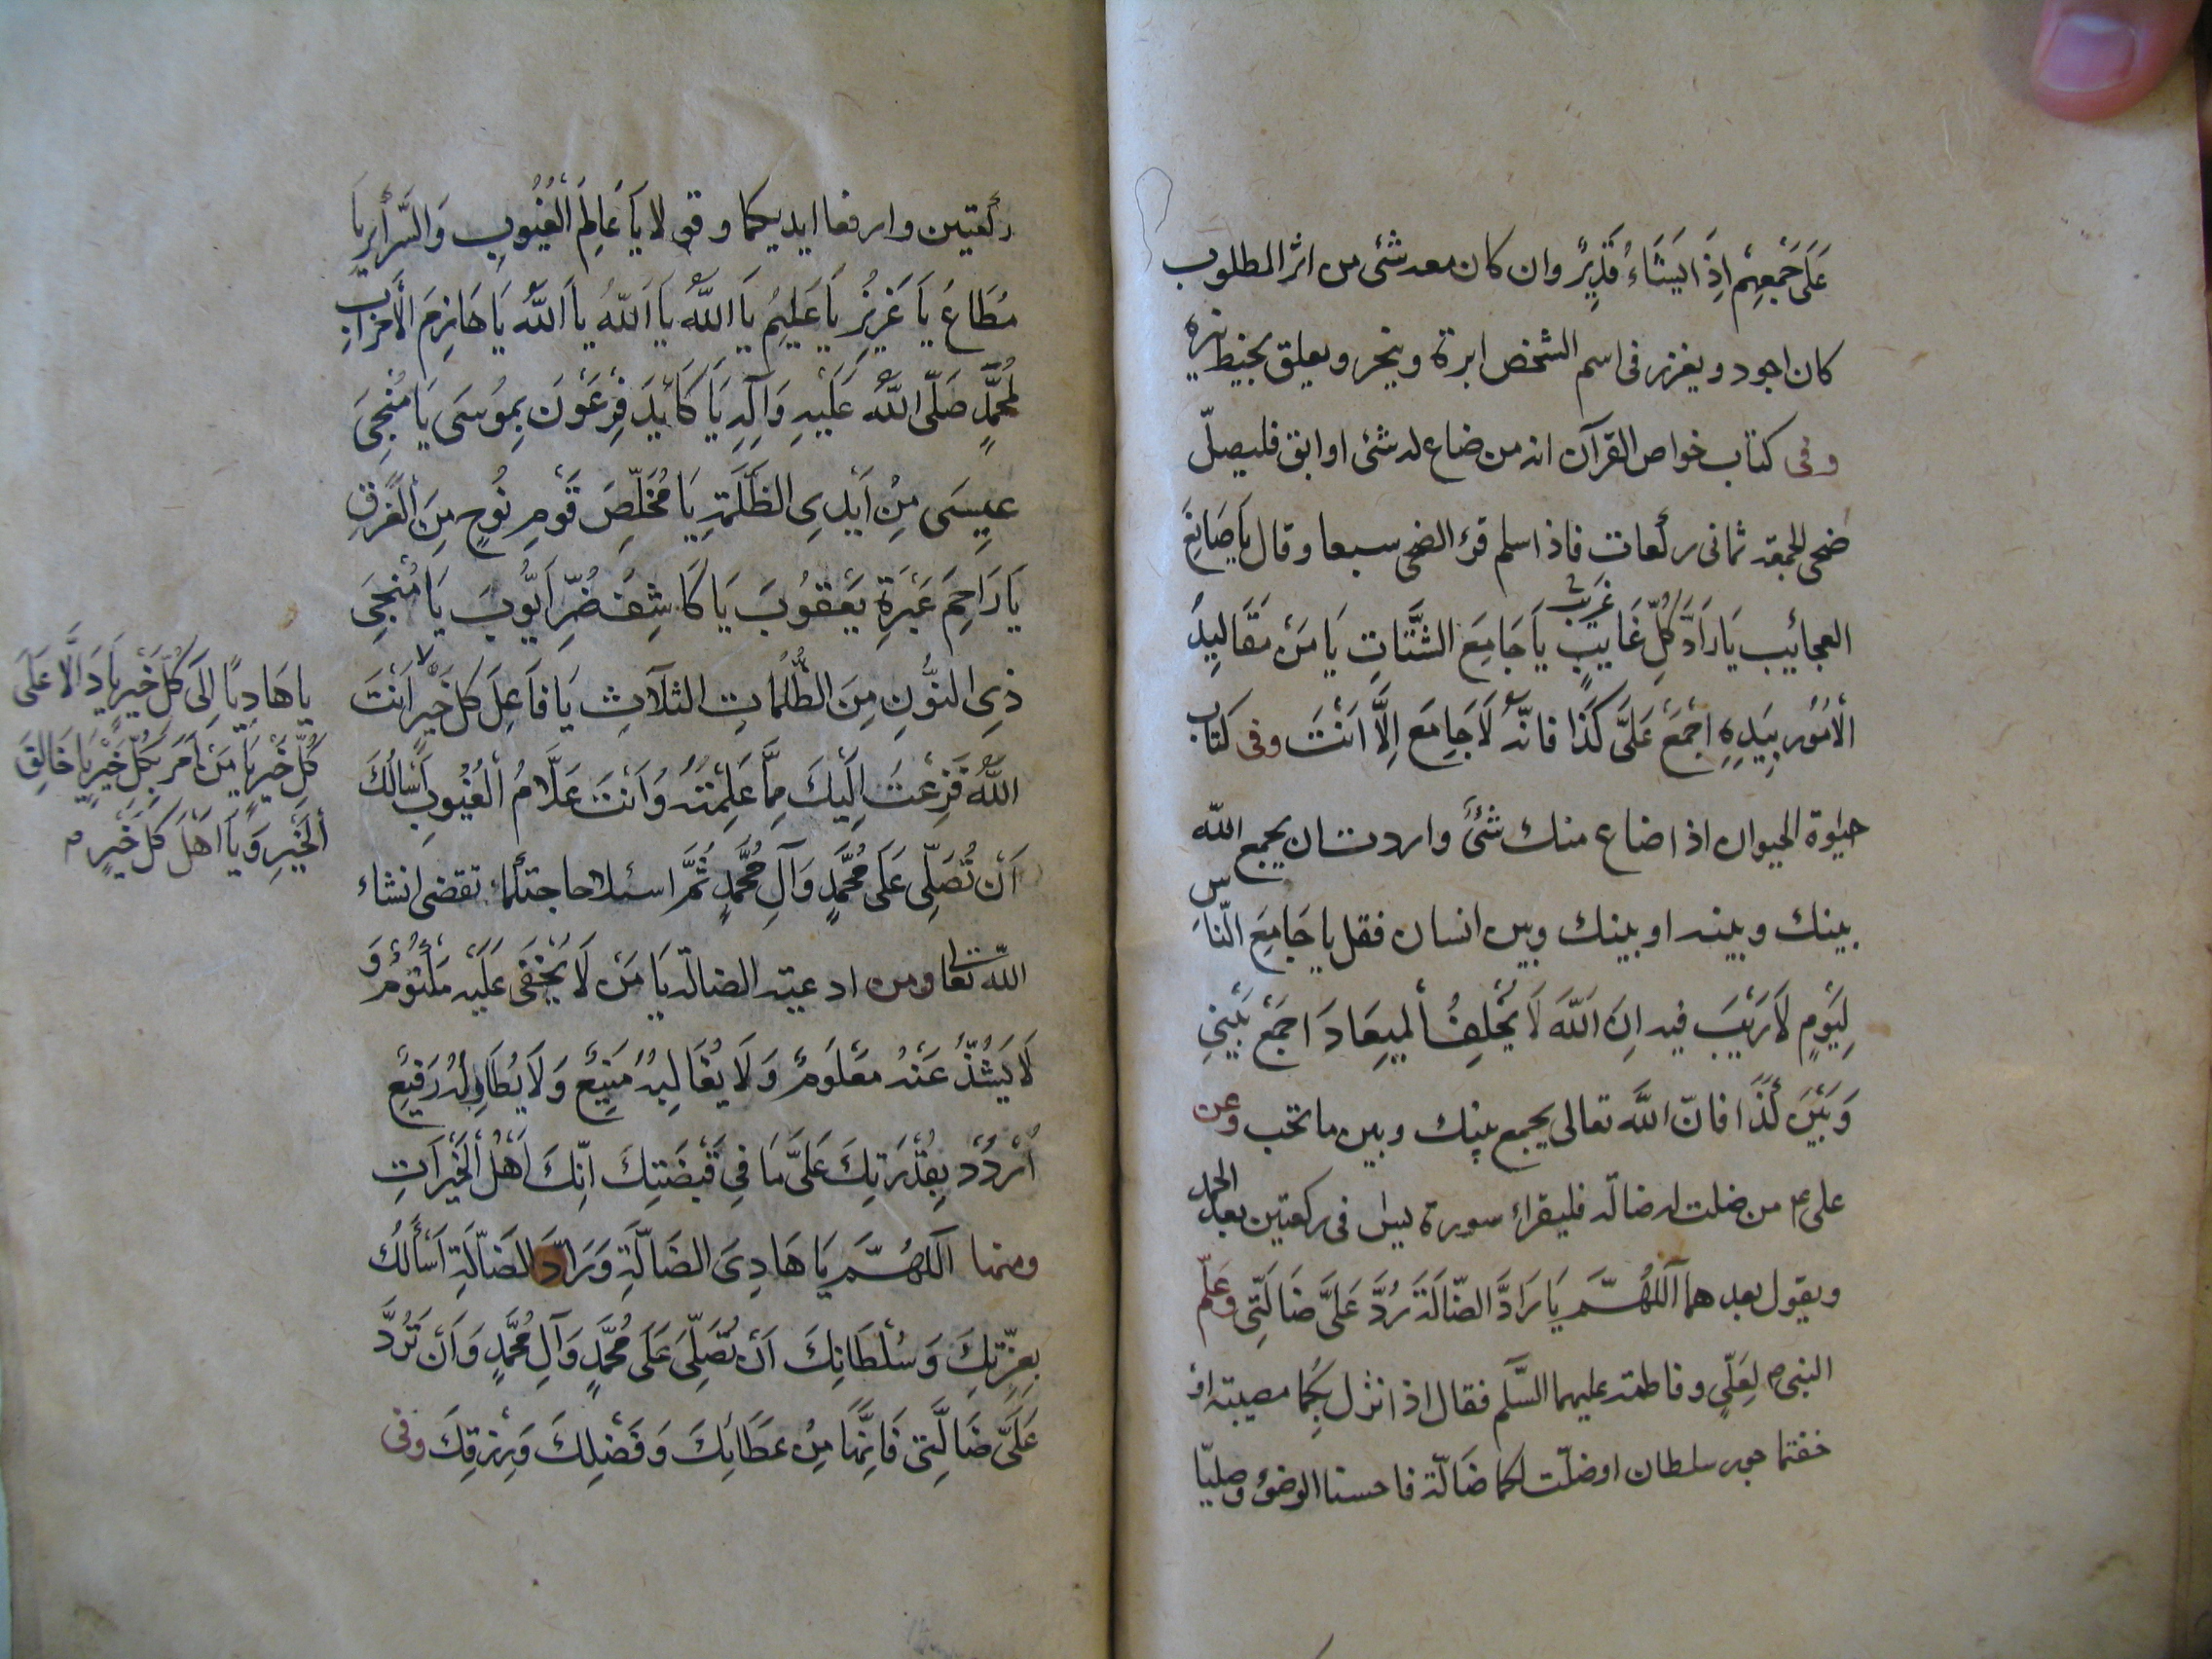 عَلَى جَمْعِهِمْ اِذَا يَشَاءُ قَدِيرٌ وان كان معه شئ من اثر المطلوب
كان اجود ويغرز فى اسم الشخص ابرة وينجر ويعلق بخيط نيره
وفى كتاب خواص القرآن انه من ضاع له شئ او ابق فليصلّ
ضحى الجمعة ثمانى ركعات فاذا سلم قرء الضحى سبعا وقال يَا صَانِعَ
العجائِيب يَا رَادَّ كُلِّ غَايبٍ يَا جَامِعَ الشَّتَاتِ يَا مَنْ مَقَالِيدُ
غَرِيب
الْاُمُورِ بِيَدِهِ اِجْمَعْ عَلَىَّ كَذَا فانَّهُ لَا جَامِعَ اِلَّا اَنْتَ وفى كتاب
حيٰوة الحيوان اذا ضاع منك شئٌ واردت ان يجمع اللّه
بينك وبينه او بينك وبين انسان فقل يا جَامِعَ النَّاسِ
لِيَوْمٍ لَا رَيْبَ فيه اِنَ اللّهَ لَا يُخْلِفُ الْمِيعَادَ اِجْمَعْ بَيْنِي
وَبَيْنَ كَذَا فانّ اللّه تعالى يجمع بينك وبين ما تحب وعن
على ع من ضلت له ضالّه فليقراء سورة يس فى ركعتين بعد الحمد
ويقول بعدهما اَللّهُمَّ يَا رَادَّ الضّالَةَ رُدَّ عَلَىَّ ضَالَّتِى وعَلّم
النبى ص لِعَلّىٍ وفاطمه عليهما السّلم فقال اذا نزل بِكُما مصيبة او
خفتما جور سلطان او ضلّت لكما ضَالّة فاحسنا الوضوُ وصليّا
ركعتين وارفعا ايديكما وقولا يَا عَالِمَ الْغُيُوبِ وَالسَّرَائِرِ يَا
مُطَاعُ يَا عَزِيزُ يَا عَلِيمُ يَا اَللّهُ يَا اَللّهُ يَا اَللّهُ يَا هَازِمَ الْاَحْزَابِ
لِمُحَمَّدٍ صَلَّى اللّهُ عَلَيْهِ وَآلِهِ يَا كَائِدَ فِرْعَوْنَ بِمُوسَى يَا مُنْجِىَ
عِيسَى مِنْ اَيْدِى الظَّلَمَةِ يَا مُخَلِّصَ قَوْمِ نُوحٍ مِنَ الْغَرَقِ
يَا رَاحِمَ عَبْرَةِ يَعْقُوبَ يَا كَاشِفَ ضُرِّ اَيُّوبَ يَا مُنْجِىَ
ذِى النُّونِ مِنَ الظُّلُمَاتِ الثلَاثِ يَا فَاعِلَ كل خَيْرٍ اَنْتَ
اللّهُ فَزِعْتُ اِلَيْكَ مِمَّا عَلِمْتَهُ وَاَنْتَ عَلَّامُ الْغُيُوبِ اَسْالُكَ
اَنْ تُصَلِّى عَلَى مُحَمَّدٍ وَآلِ مُحَمَّدٍ ثُمَّ اسئلا حاجتكما تقضى انشاء
اللّه تعالى ومن ادعية الضالة يَا مَنْ لَا يَخْفَى عَلَيْه مَكْتُومٌ وَ
لَا يَشُذُّ عَنْهُ مَعْلُومٌ وَلَا يُغَالِبُهُ مَنِيعٌ وَلَا يُطَاوِلُهُ رَفِيعٌ
اُرْدُدْ بِقُدْرَتِكَ عَلَىَّ مَا فِي قَبْضَتِكَ اِنَّكَ اَهْلُ الْخَيْرَاتِ
ومنها اَللّهُمَّ يَا هَادِىَ الضَالَّةِ وَرَادَّ الضَالَّةِ اَسْأَلُكَ
بِعِزَّتِكَ وَسُلْطَانِكَ اَنْ تُصَلِّىَ عَلَى مُحَمَّدٍ وَآلِ مُحَمَّدٍ وَاَنْ تَرُدَّ
عَلَىَّ ضَالَّتِى فَاِنَّهَا مِنْ عَطَائِكَ وَفَضْلِكَ وَرِزْقِكَ وفى
يا هَادِيًا اِلَى كُلِّ خَيْرٍ يَا دَالًّا عَلَى
كُلِّ خَيْرٍ يَا مَنْ اَمَرَ بِكُلِّ خَيْرٍ يَا خَالِقَ
الْخَيْرِ وَيَا اَهْلَ كُلِّ خَيْرٍ م